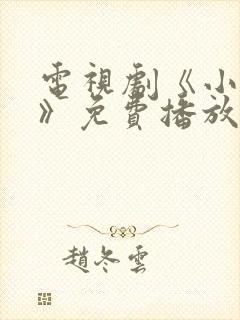 電視劇《小
》免費播放
趙冬雲